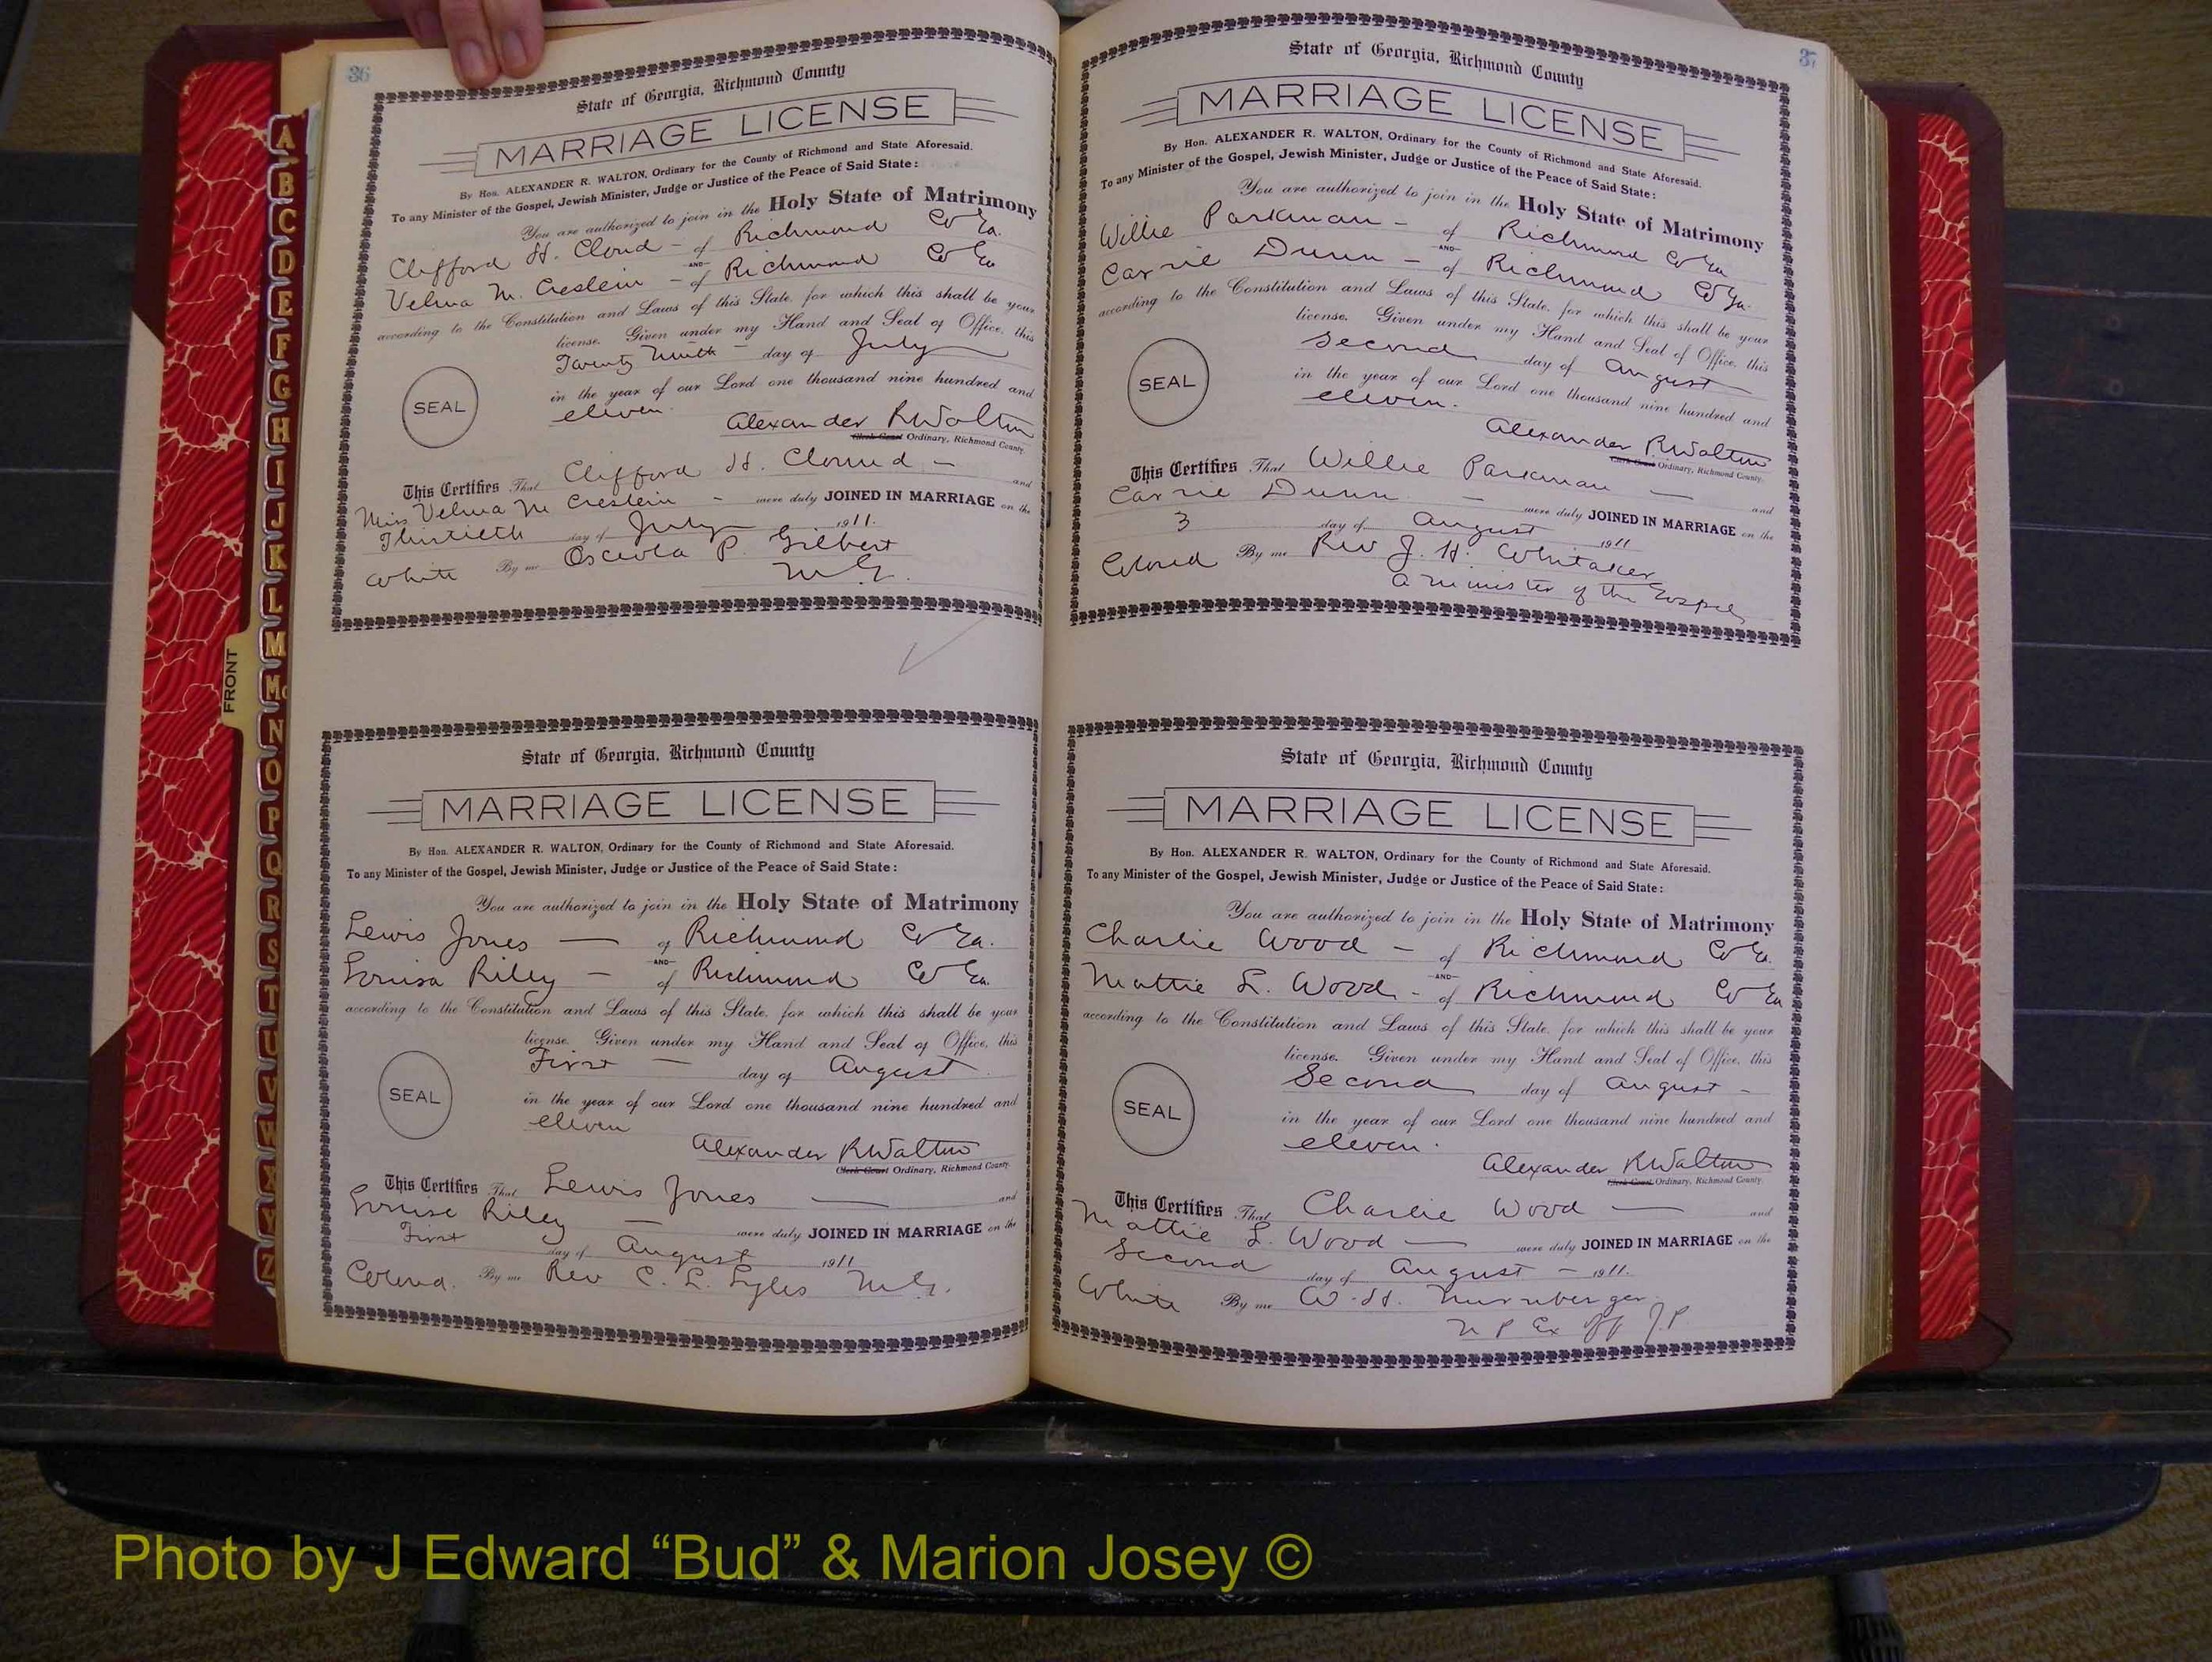 36
State of Georgia, Richmond County
MARRIAGE LICENSE
By Hon. ALEXANDER R. WALTON, Ordinary for the County of Richmond and State Aforesaid.
To any Minister of the Gospel, Jewish Minister, Judge or Justice of the Peace of Said State:
You are authorized to join in the Holy State of Matrimony
Clifford H. Cloud - of Richmond Co Ga.
AND
Velma M. Creslein - of Richmond Co Ga
according to the Constitution and Laws of this State, for which this shall be your
license. Given under my Hand and Seal of Office, this
Twenty Ninth - day of July
SEAL
in the year of our Lord one thousand nine hundred and
eleven.
Alexander R Walton
Clerk Court Ordinary, Richmond County.
This Certifies That Clifford H. Cloud - and
Miss Velma M Creslein - were duly JOINED IN MARRIAGE on the
Thirtieth day of July 1911.
White By me Osceola P. Gilbert
M.G.
State of Georgia, Richmond County
MARRIAGE LICENSE
By Hon. ALEXANDER R. WALTON, Ordinary for the County of Richmond and State Aforesaid.
To any Minister of the Gospel, Jewish Minister, Judge or Justice of the Peace of Said State:
You are authorized to join in the Holy State of Matrimony
Lewis Jones - of Richmond Co Ga.
AND
Louisa Riley - of Richmond Co Ga.
according to the Constitution and Laws of this State, for which this shall be your
license. Given under my Hand and Seal of Office, this
First - day of August
SEAL
in the year of our Lord one thousand nine hundred and
eleven
Alexander R Walton
Clerk Court Ordinary, Richmond County.
This Certifies That Lewis Jones - and
Louise Riley - were duly JOINED IN MARRIAGE on the
First day of August 1911
Colored. By me Rev C. L. Lyles M.G.
37
State of Georgia, Richmond County
MARRIAGE LICENSE
By Hon. ALEXANDER R. WALTON, Ordinary for the County of Richmond and State Aforesaid.
To any Minister of the Gospel, Jewish Minister, Judge or Justice of the Peace of Said State:
You are authorized to join in the Holy State of Matrimony
Willie Parkman - of Richmond Co Ga
AND
Carrie Dunn - of Richmond Co Ga.
according to the Constitution and Laws of this State, for which this shall be your
license. Given under my Hand and Seal of Office, this
Second day of August
SEAL
in the year of our Lord one thousand nine hundred and
eleven.
Alexander R Walton
Clerk Court Ordinary, Richmond County.
This Certifies That Willie Parkman - and
Carrie Dunn - were duly JOINED IN MARRIAGE on the
3 day of August 1911
Colored By me Rev J. H. Whitaker
a minister of the Gospel
State of Georgia, Richmond County
MARRIAGE LICENSE
By Hon. ALEXANDER R. WALTON, Ordinary for the County of Richmond and State Aforesaid.
To any Minister of the Gospel, Jewish Minister, Judge or Justice of the Peace of Said State:
You are authorized to join in the Holy State of Matrimony
Charlie Wood - of Richmond Co Ga.
AND
Mattie L. Wood - of Richmond Co Ga
according to the Constitution and Laws of this State, for which this shall be your
license. Given under my Hand and Seal of Office, this
Second day of August -
SEAL
in the year of our Lord one thousand nine hundred and
eleven.
Alexander R Walton
Clerk Court Ordinary, Richmond County.
This Certifies That Charlie Wood - and
Mattie L. Wood - were duly JOINED IN MARRIAGE on the
Second day of August - 1911.
White By me W. H. Nurnberger.
N P Ex Off J.P
A
B
C
D
E
F
G
H
I
J
K
L
M
Mc
N
O
P
Q
R
S
T
U
V
W
X
Y
Z
FRONT
Photo by J Edward “Bud” & Marion Josey ©